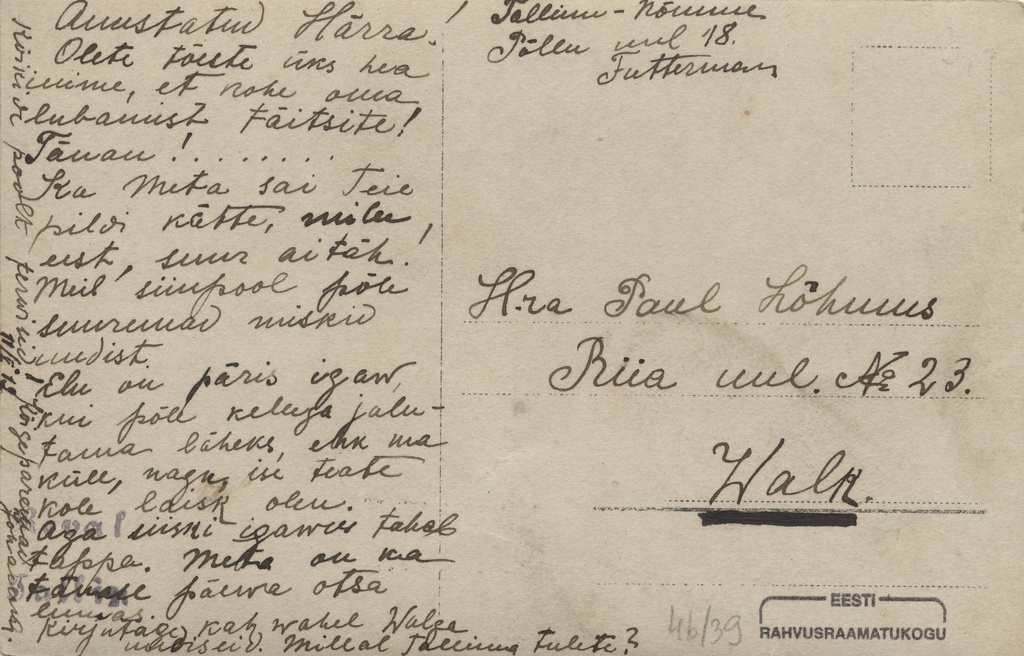 Auustatud Härra!
Olete tõeste üks hea
inime, et kohe oma
lubamist täitsite!
Tänan!........
Ka Meta sai Teie
pildi kätte, mille
eest, suur aitäh!
Meil siinpool põle
suuremad miskid
uudist.
Elu on päris igaw,
kui põle kellega jalu-
tama läheks, ehk ma
küll, nagu ise teate
kole laisk olen.
Aga siiski igawus tahab
tappa. Meta on ka
päewa otsa
linnas.
Kirjutage kah wahel Walga
uudiseid. Millal Tallinna tulete?
poolt terwisi!
Kõigeparemad
Tallinn-Nõmme
Põllu uul 18.
Futterman
H-ra Paul Lõhmus
Riia uul. № 23.
Walk.
46/39
EESTI
RAHVUSRAAMATUKOGU